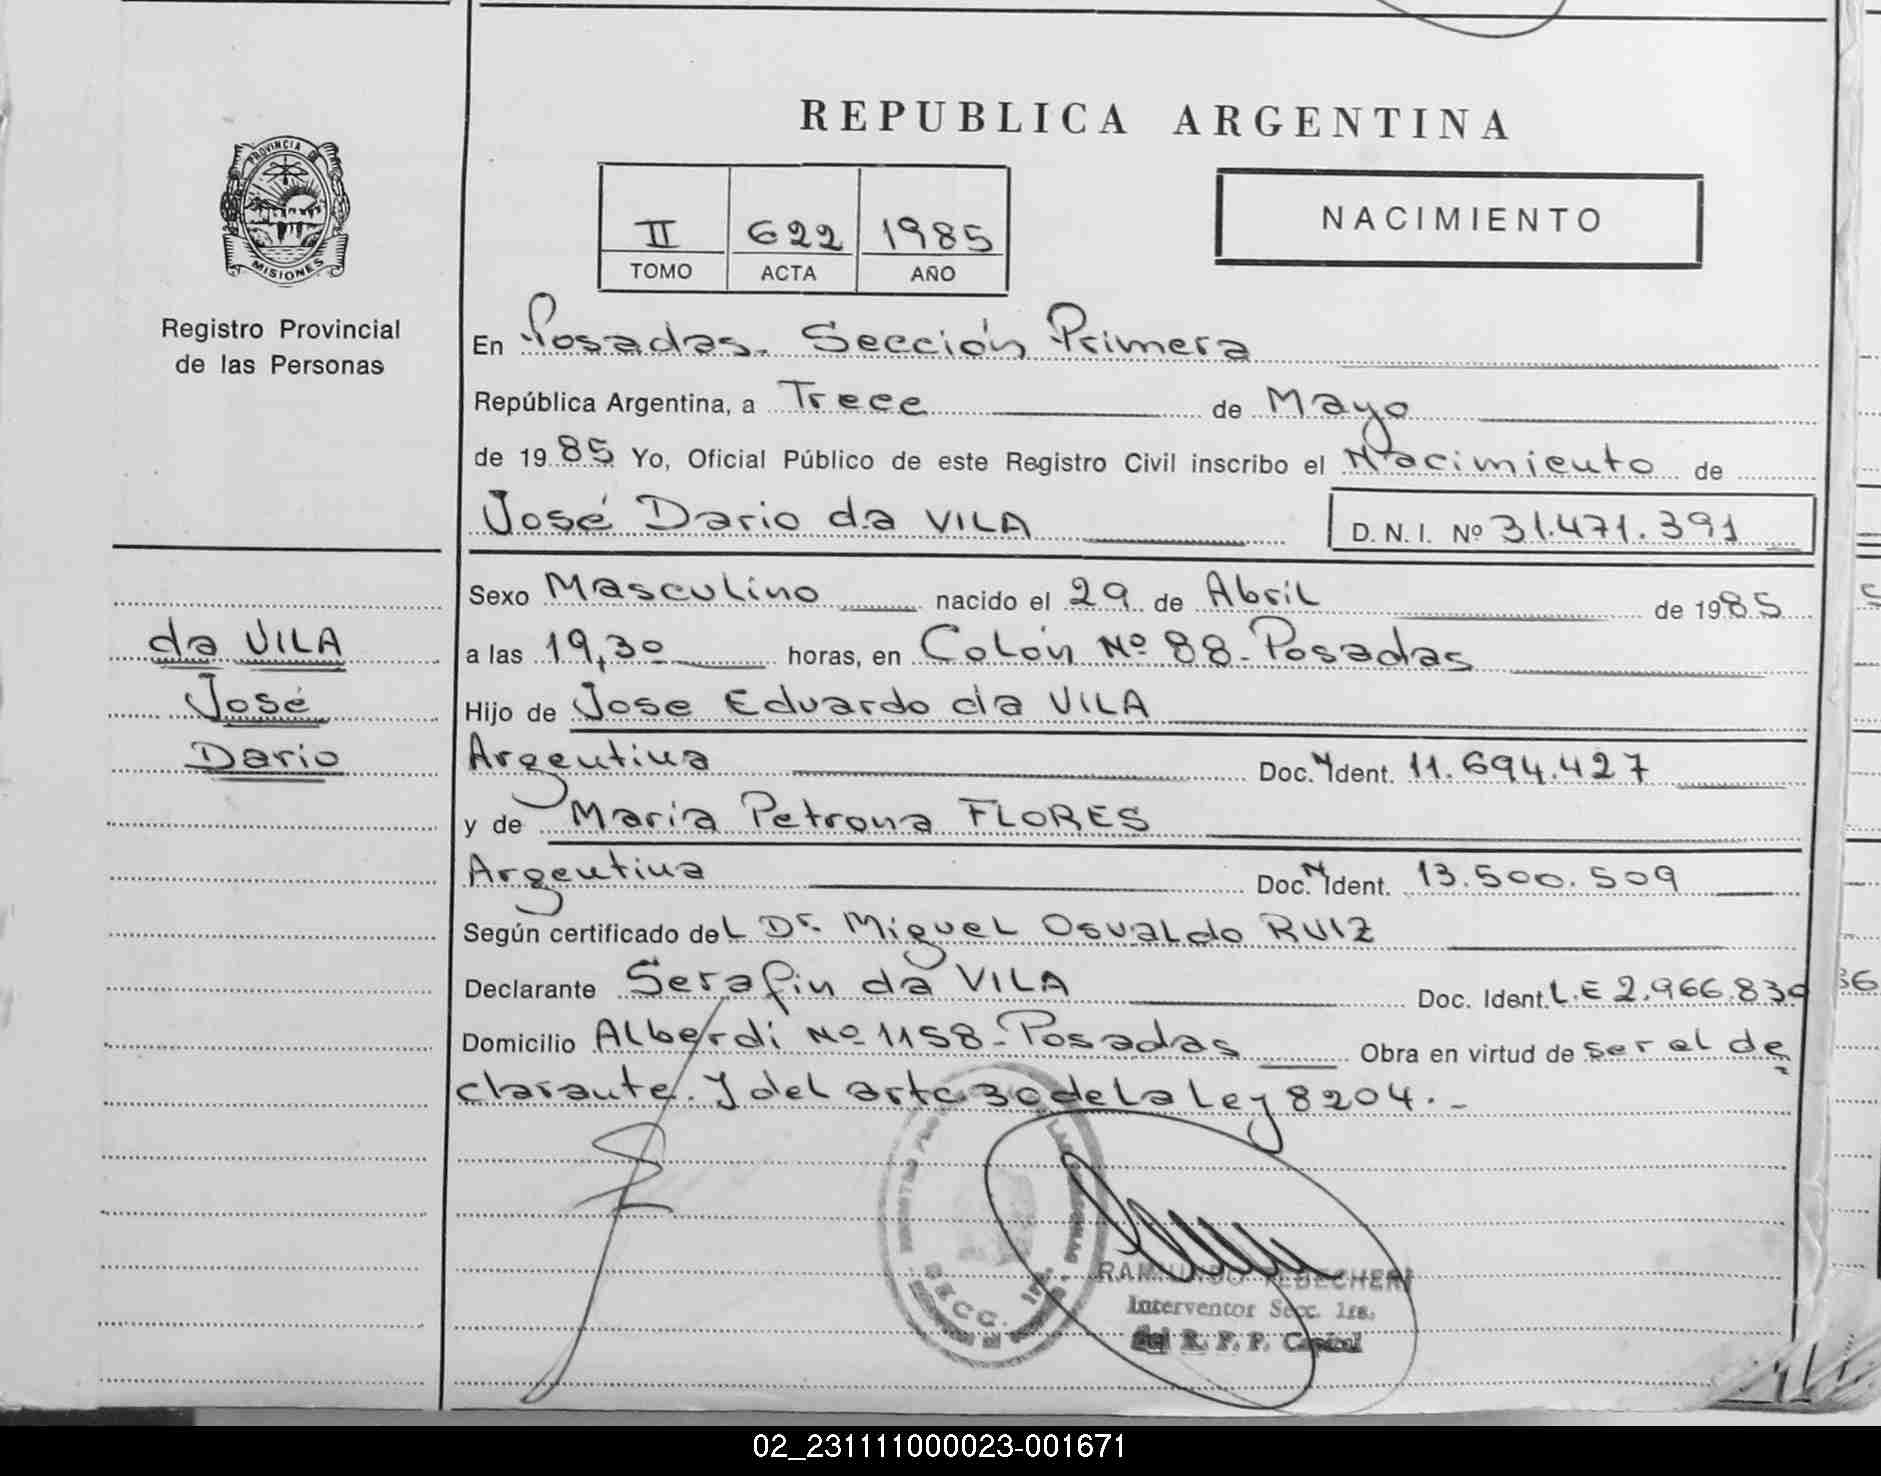 REPUBLICA ARGENTINA
PROVINCIA DE
MISIONES
Registro Provincial
de las Personas
II 622 1985
TOMO ACTA AÑO
NACIMIENTO
En Posadas. Sección Primera
República Argentina, a Trece de Mayo
de 1985 Yo, Oficial Público de este Registro Civil inscribo el Nacimiento de
José Dario da VILA D. N. I. Nº 31.471.391
da VILA
José
Dario
Sexo Masculino nacido el 29 de Abril de 1985
a las 19,30 horas, en Colón Nº 88-Posadas
Hijo de Jose Eduardo da VILA
Argentina Doc. N Ident. 11.694.427
y de Maria Petrona FLORES
Argentina Doc. N Ident. 13.500.509
Según certificado del Dr. Miguel Osvaldo RUIZ
Declarante Serafin da VILA Doc. Ident. L.E 2.966.830
Domicilio Alberdi Nº 1158-Posadas Obra en virtud de ser el de
clarante. y del artc 30 de la Ley 8204.-
SECC. 1ra.
Interventor Secc. 1ra.
del R. P. P. Capital
02_231111000023-001671